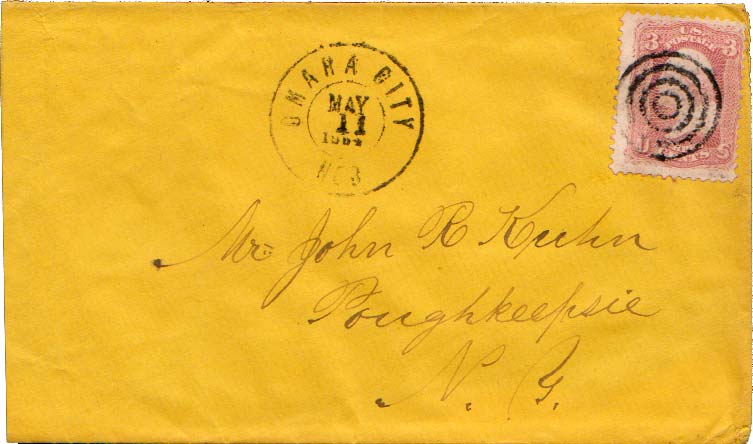 OMAHA CITY
MAY
11
1864
NEB
3 U.S. 3
POSTAGE
U CENTS S
Mr. John R Kuhn
Poughkeepsie
N. Y.